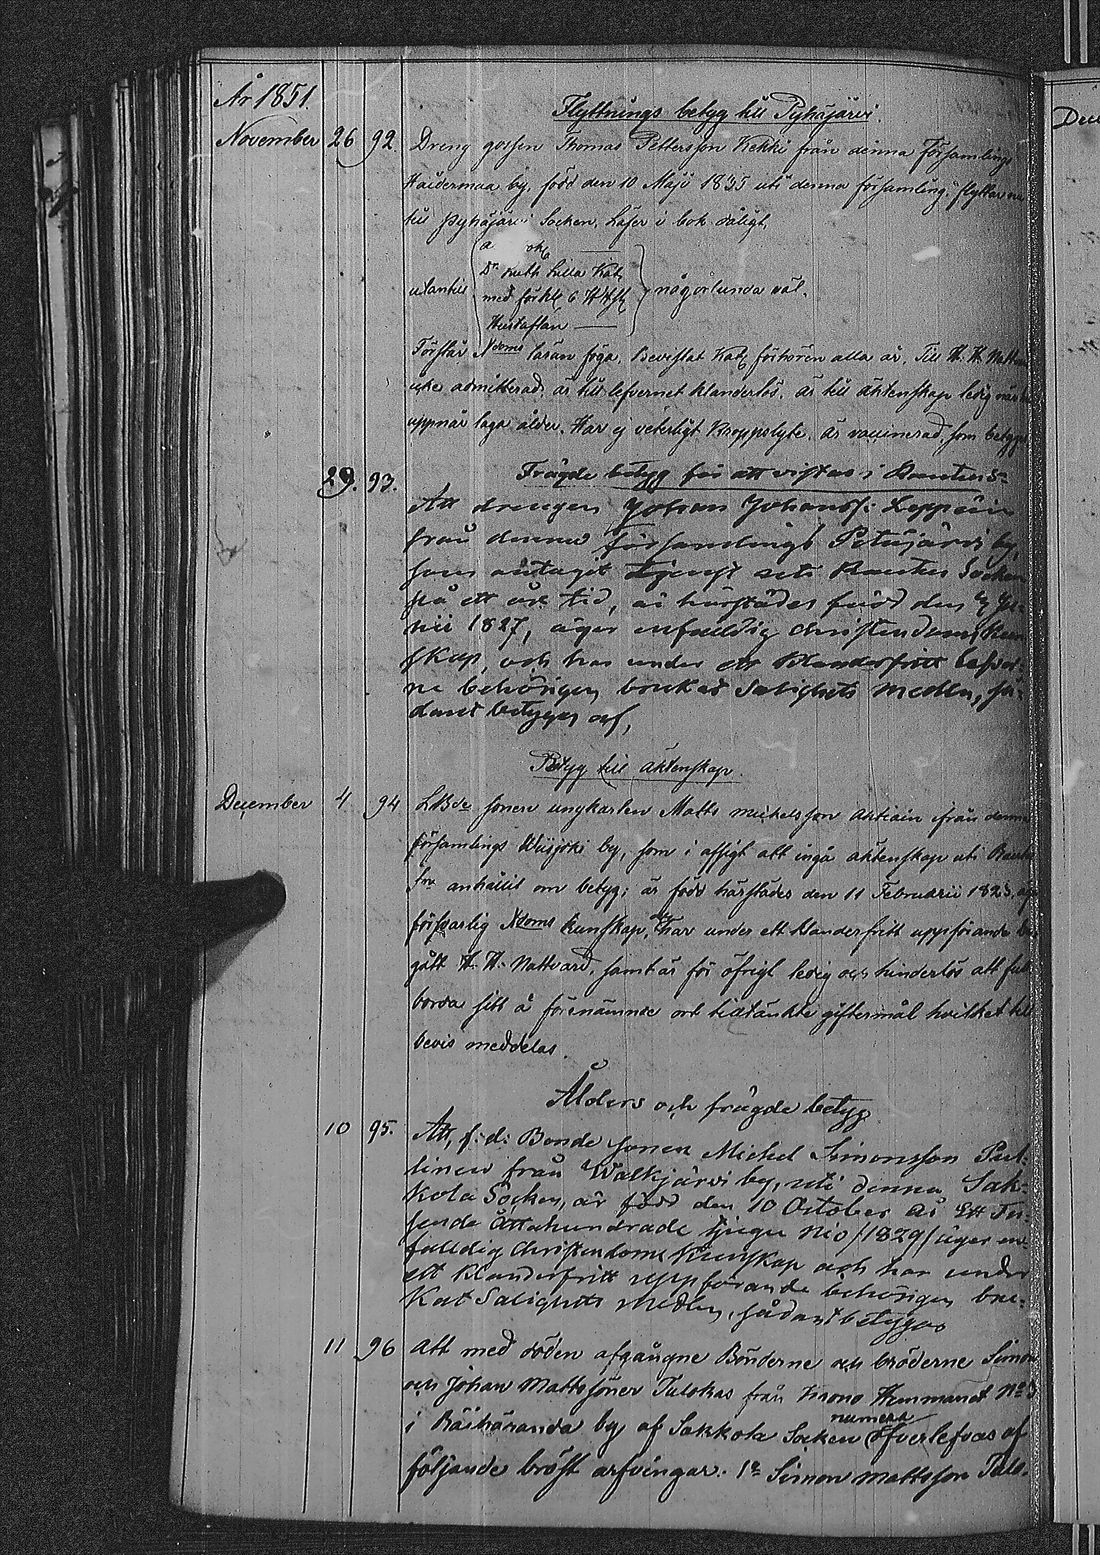 År 1851.
Flyttnings betyg till Pyhäjärvi.
November 26 92 Dreng gossen Thomas Pettersson Kekki från denna Församlings
Haidermaa by, född den 10 Maji 1835 uti denna församling, flyttar nu
till Pyhäjärvi Socken. Läser i bok
a
Dr Luth Lilla Kat.
utantill med förkl
någorlunda väl.
Hustaflan
Förstår Xdoms läran föga. Bevistat Kat. förhören alla år. Till H. H. Nattv
icke admitterad, är till lefvernet klanderlös, är till äktenskap ledig när
uppnår laga ålder. Har ej veterligt kroppslyte. Är vaccinerad, som betyges
29. 93. Frägde betyg för att vistas i Rautus
Att drengen Johan Johanss: Leppäin
från denna församlings Petäjärvi by,
som antagit tjenst uti Rautus Socken
på ett års tid, är härstädes född den Ju-
nii 1827, äger enfaldig christendoms kun
skap, och har under ett klanderfritt lefver-
ne behörigen brukat Salighets medlen, så-
dant betygas af,
Betyg till äktenskap.
December 4 94 Lbde sonen ungkarlen Matts Mickelsson från denna
församlings by, som i afsigt att ingå äktenskap uti Rautus
anhållit om betyg; är född härstädes den 11 Februarii 1823, äg
försvarlig Xdoms kunskap, har under ett klanderfritt uppförande be
gått H. H. Nattvard, samt är för öfrigt ledig och hinderlös att full
borda sitt å förenämnde ort tilltänkte giftermål hvilket till
bevis meddelas
Ålders och frägde betyg
10 95. Att, f: d: Bonde sonen Michel Simonsson Pul-
linen från Walkjärvi by, uti denna Sak-
kola Socken, är född den 10 October År Ett Tu-
sende Åttahundrade tjugu Nio /1829/ äger en-
faldig Christendoms Kunskap och har under
ett klanderfritt uppförande behörigen bru-
kat Salighets Medlen, sådant betygas
11 96 Att med döden afgångne Bönderne och bröderne Simon
och Johan Mattssöner Tulokas från Krono Hemmanet No 3
i Räihäranda by af Sakkola Socken numera öfverlefvas af
följande bröst arfvingar: 1o Simon Mattsson Tulo-
Dece